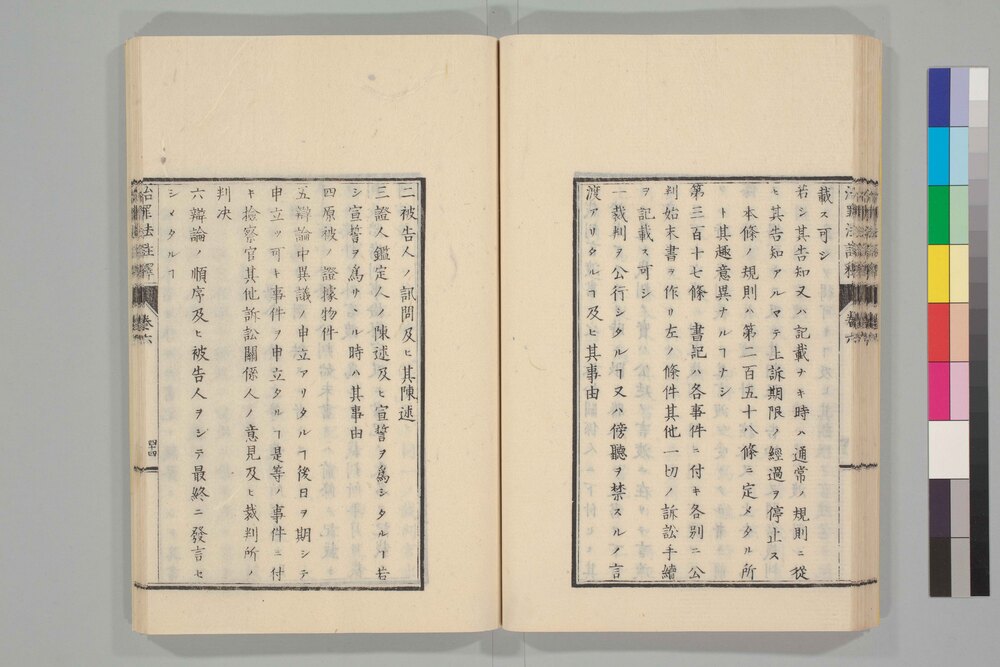 載ス可シ
若シ其告知又ハ記載ナキ時ハ通常ノ規則ニ從
ヒ其告知アルマテ上訴期限ノ經過ヲ停止ス
本條ノ規則ハ第二百五十八條ニ定メタル所
ト其趣意異ナルヿナシ
第三百十七條 書記ハ各事件ニ付キ各別ニ公
判始末書ヲ作リ左ノ條件其他一切ノ訴訟手續
ヲ記載ス可シ
一裁判ヲ公行シタルヿ又ハ傍聽ヲ禁スルノ言
渡アリタルヿ及ヒ其事由
二被告人ノ訊問及ヒ其陳述
三證人鑑定人ノ陳述及ヒ宣誓ヲ爲シタルヿ若
シ宣誓ヲ爲サヽル時ハ其事由
四原被ノ證據物件
五辯論中異議ノ申立アリタルヿ後日ヲ期シテ
申立ツ可キ事件ヲ申立タルヿ是等ノ事件ニ付
キ撿察官其他訴訟關係人ノ意見及ヒ裁判所ノ
判决
六辯論ノ順序及ヒ被告人ヲシテ最終ニ發言セ
シメタルヿ
治罪法註釋 卷六 四十四